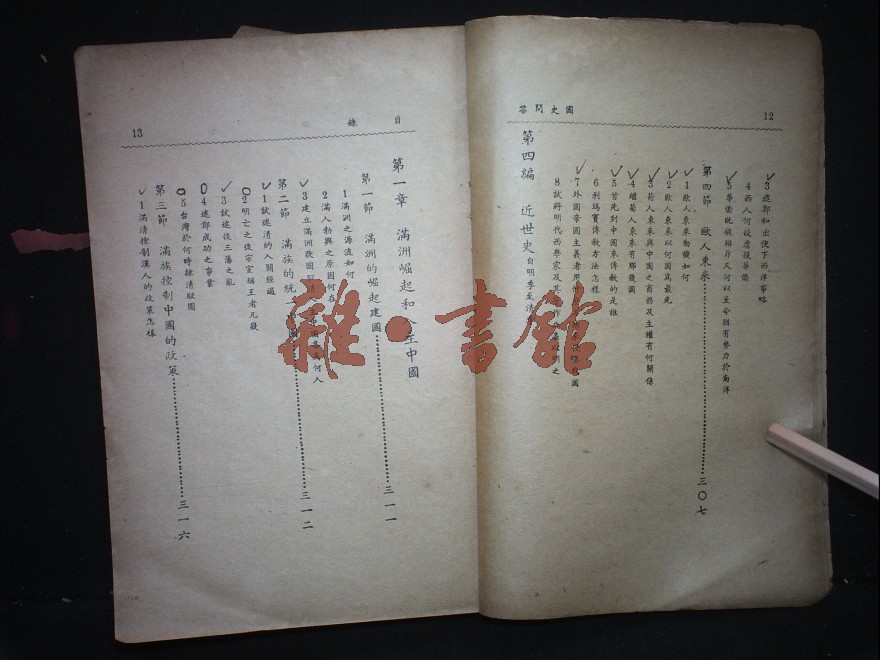 國史問答
12
3 述鄭和出使下西洋事略
4 西人何故虐殺華僑
5 華僑既被排斥又何以至今猶有勢力於南洋
第四節 歐人東來……三〇七
1 歐人東來動機如何
2 歐人東來以何國為最先
3 葡人東來與中國之商務及主權有何關係
4 繼葡人東來有那幾國
5 首先到中國來傳教的是誰
6 利瑪竇傳教方法怎樣
7 外國帝國主義者
8 試將明代西學家及其
第四編 近世史 自明季至清
目錄
13
第一章 滿洲崛起和入主中國
第一節 滿洲的崛起建國……三一一
1 滿洲之源流如何
2 滿人勃興之原因何在
3 建立滿洲政國
何人
第二節 滿族的統一……三一二
1 試述清的入關經過
2 明亡之後宗室稱王者凡幾
3 試述後三藩之亂
4 述鄭成功之事業
5 台灣於何時隸清版圖
第三節 滿族控制中國的政策……三一六
1 滿清控制漢人的政策怎樣
雜·書館